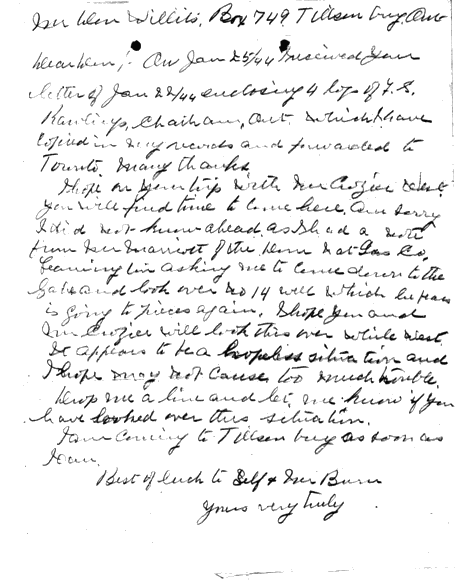 Mr Ken Willits, Box 749, Tillsonburg, Ont
Dear Ken; - On Jan 25/44 received your
letter of Jan 22/44 enclosing 4 logs of F.S.
Rawlings, Chatham, Ont which I have
copied in my records and forwarded to
Toronto. Many thanks
I hope on your trip with Mr Crozier west
you will find time to come here. Am sorry
I did not know ahead as I had a note
from Mr Marriott of the Dom Nat Gas Co,
Leamington asking me to come down to the
and look over No 14 well which he
is going to pieces again. I hope you and
Mr Crozier will look this over while west.
It appears to be a hopeless situation and
I hope may not cause too much trouble.
Drop me a line and let me know if you
have looked over this situation.
I am coming to Tillsonburg as soon as
I can.
Best of luck to Self & Mr
Yours very truly